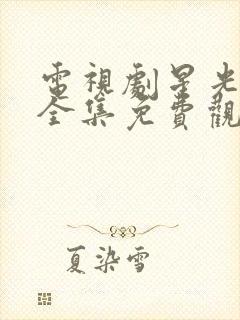 電視劇星光
全集免費觀
夏染雪